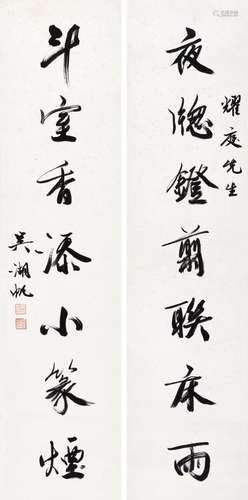 耀庭先生
夜窻鐙翦聯床雨
斗室香添小篆煙
吳湖帆